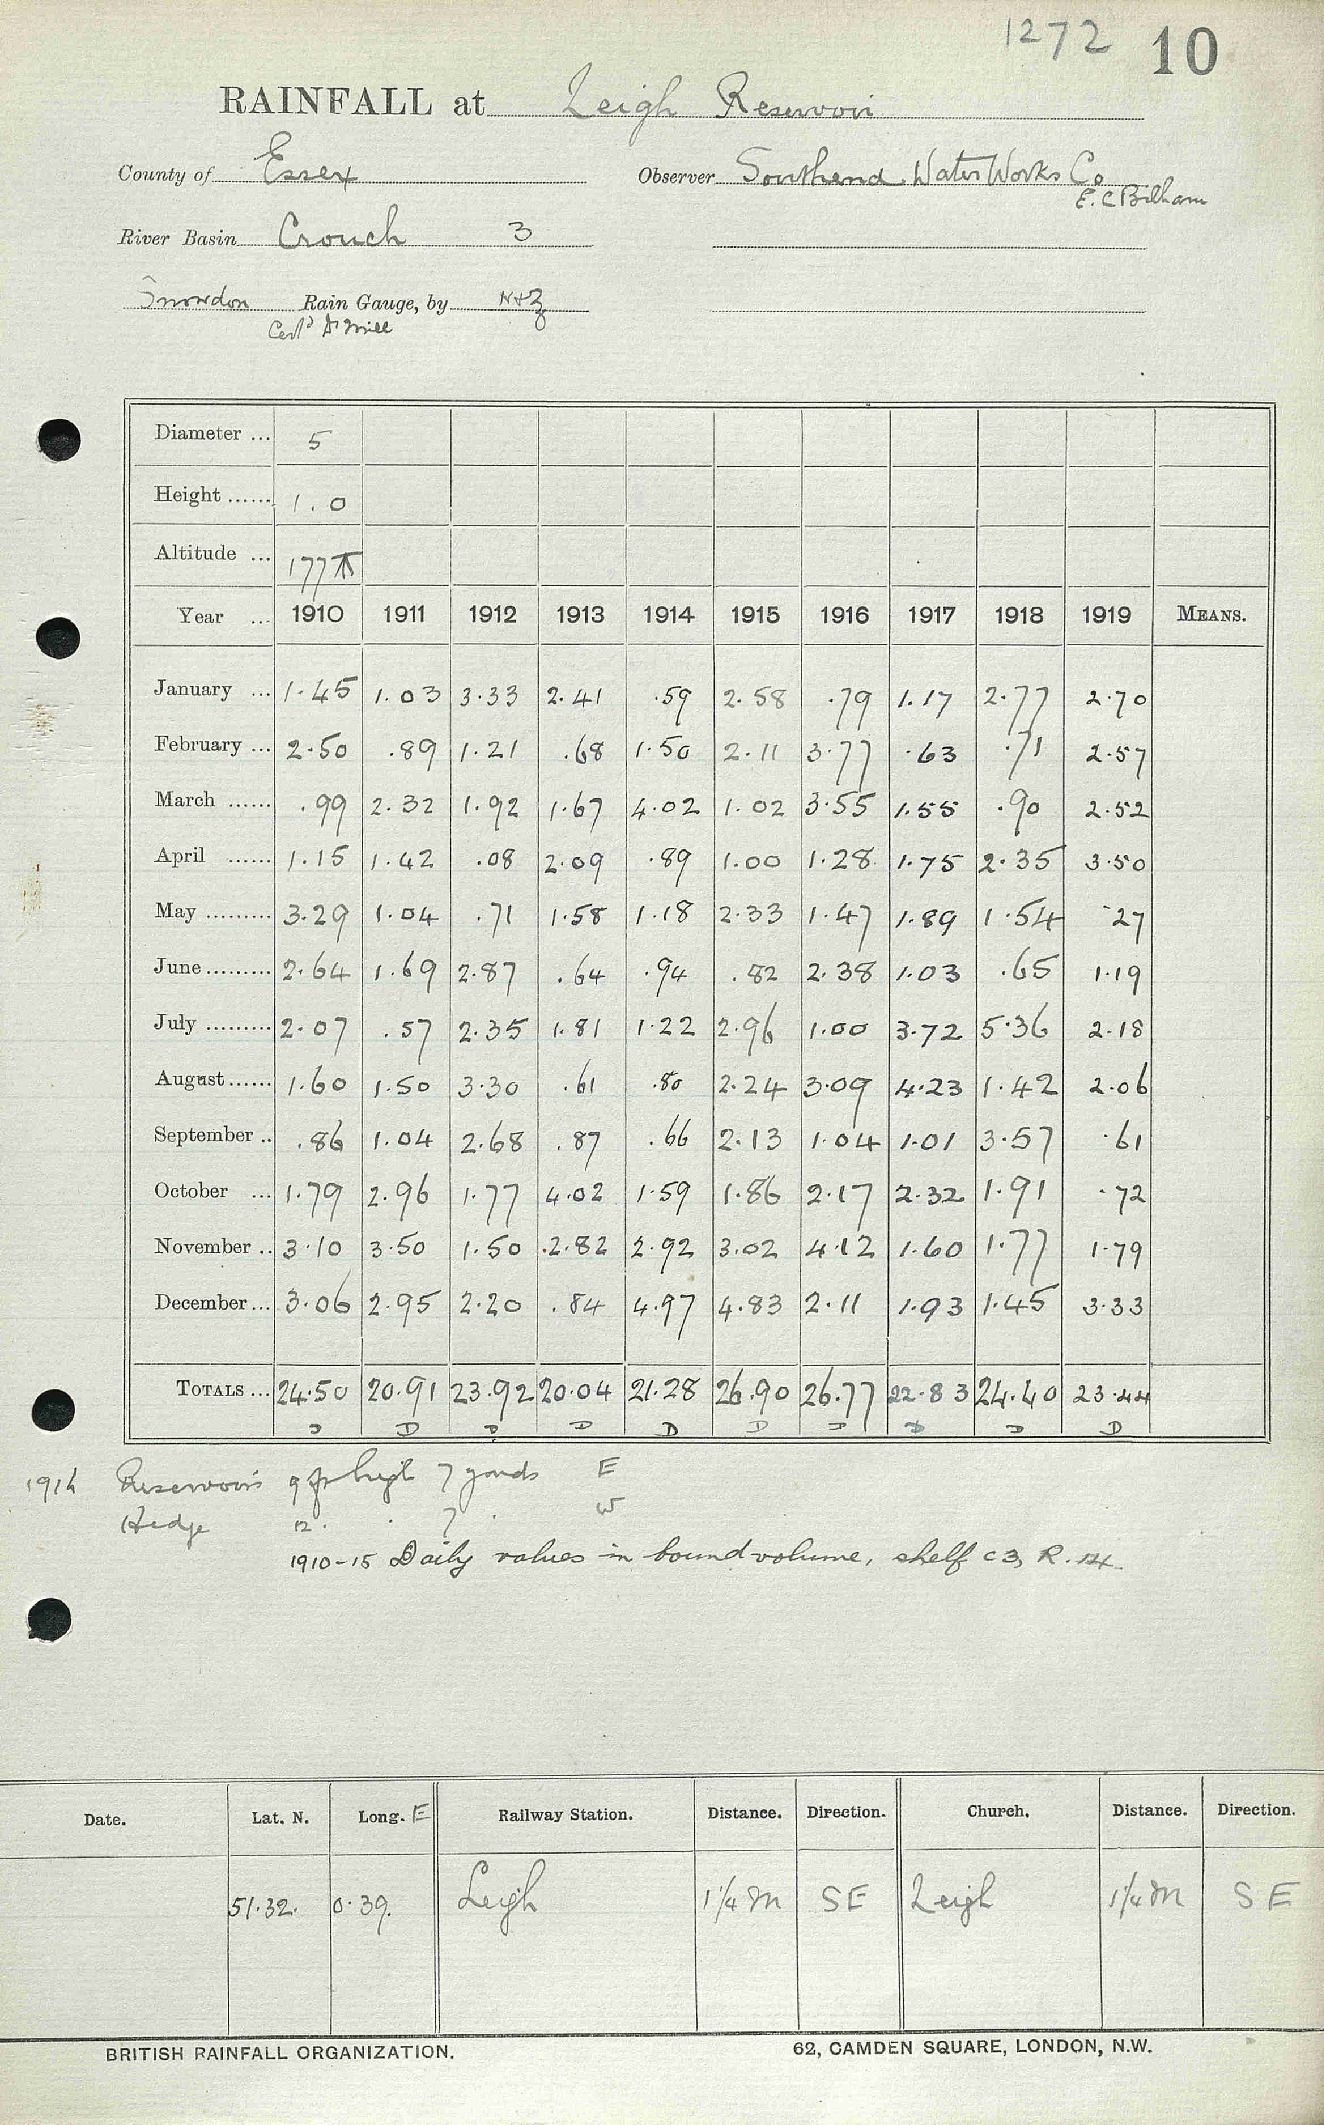 1272 10
RAINFALL at Leigh Reservoir
County of Essex Observer Southend Water Works Co
E. C Bilham
River Basin Crouch 3
Snowdon Rain Gauge, by N+Z
Certd Dr Mill
Diameter ... 5
Height ...... 1.0
Altitude ... 177
Year ... 1910 1911 1912 1913 1914 1915 1916 1917 1918 1919 MEANS.
January ... 1.45 1.03 3.33 2.41 .59 2.58 .79 1.17 2.77 2.70
February ... 2.50 .89 1.21 .68 1.50 2.11 3.77 .63 .71 2.57
March ...... .99 2.32 1.92 1.67 4.02 1.02 3.55 1.55 .90 2.52
April ...... 1.15 1.42 .08 2.09 .89 1.00 1.28 1.75 2.35 3.50
May ......... 3.29 1.04 .71 1.58 1.18 2.33 1.47 1.89 1.54 .27
June ......... 2.64 1.69 2.87 .64 .94 .82 2.38 1.03 .65 1.19
July ......... 2.07 .57 2.35 1.81 1.22 2.96 1.00 3.72 5.36 2.18
August ...... 1.60 1.50 3.30 .61 .80 2.24 3.09 4.23 1.42 2.06
September .. .86 1.04 2.68 .87 .66 2.13 1.04 1.01 3.57 .61
October ... 1.79 2.96 1.77 4.02 1.59 1.86 2.17 2.32 1.91 .72
November .. 3.10 3.50 1.50 .2.82 2.92 3.02 4.12 1.60 1.77 1.79
December ... 3.06 2.95 2.20 .84 4.97 4.83 2.11 1.93 1.45 3.33
TOTALS ... 24.50 20.91 23.92 20.04 21.28 26.90 26.77 22.83 24.40 23.44
D D D D D D D D D D
1914 Reservoir 9 ft high 7 yards E
Hedge 12 . . 7 . W
1910-15 Daily values in bound volume, shelf C3, R.
Date. Lat. N. Long. E Railway Station. Distance. Direction. Church. Distance. Direction.
51.32. 0.39. Leigh 1 1/4 M SE Leigh 1 1/4 M SE
BRITISH RAINFALL ORGANIZATION. 62, CAMDEN SQUARE, LONDON, N.W.